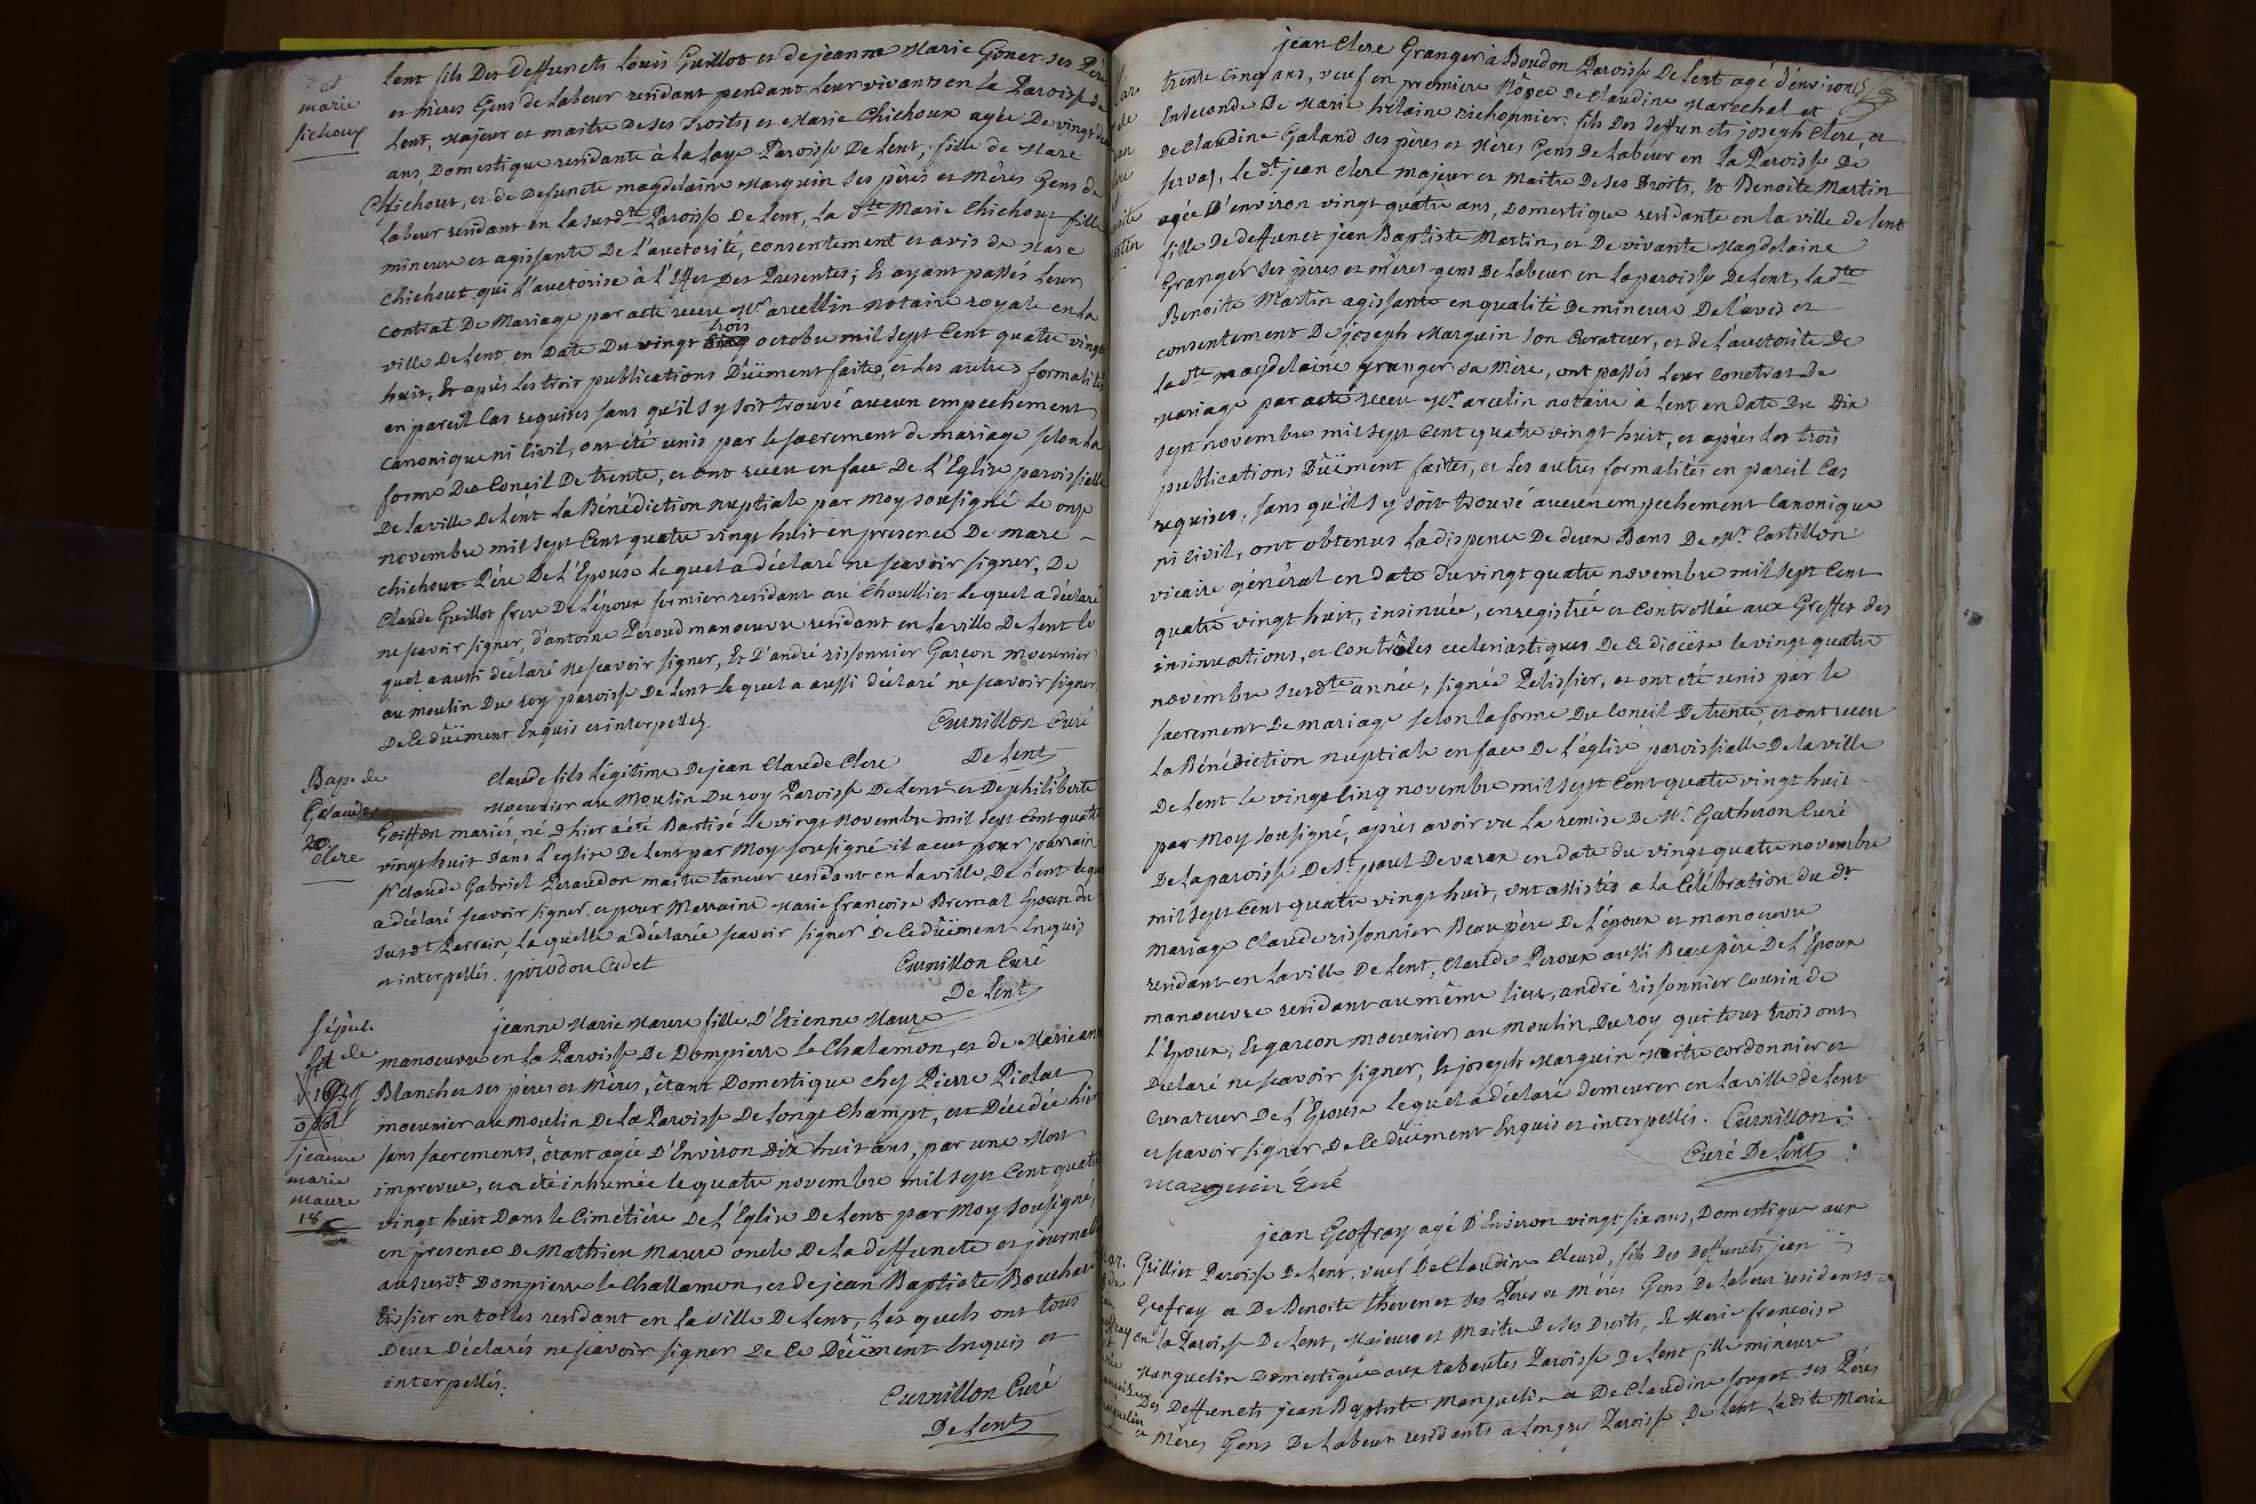 et
marie
sichoux
lent fils Des deffuncts Louis Guillot et de jeanne Marie Gonet ses Pères
et mères Gens de Labeur residant pendant leur vivants en la Paroisse de
Lent, Majeur et maitre De ses Droits, et Marie Chichoux agée De vingt deux
ans, Domestique residante à la Laye Paroisse De Lent, fille de Marc
Chichout, et de Defuncte magdelaine Marguin ses pères et Mères Gens de
Labeur residant en la susdte Paroisse De Lent, La dte Marie Chichout fille
mineure et agissante De l'auctorité, consentement et avis de Marc
Chichout qui l'auctorise à l'Effet Des Presentes; Et ayant passés Leur
Contrat De Mariage par acte receu Mr arcellin notaire royale en La
ville De Lent en Date Du vingt trois octobre mil sept Cent quatre vingt
huit, Et après Les trois publications Düement faites, et Les autres formalités
en pareil Cas requises sans qu'il s'y soit trouvé aucun empechement
Canonique ni Civil, ont été unis par le sacrement de mariage selon La
forme Des Concil De trente, et ont receu en face De L'Eglise paroissialle
De La ville De Lent La Bénédiction nuptiale par Moy sousigné Le onze
novembre mil sept Cent quatre vingt huit en presence De marc
chichout Père De L'Epouse Lequel a déclaré ne scavoir signer, De
Claude Guillot frere De L'époux fermier residant aû Choullier Lequel a déclaré
ne scavoir signer, d'antoine Peroud manoeuvre residant en La ville De Lent Le
quel a aussi déclaré ne scavoir signer, Et D'andré rissonnier Garçon moeunier
au moulin Du roy paroisse De Lent Le quel a aussi déclaré ne scavoir signer
De Ce düement Enquis et interpellez
Curnillon Curé
De Lent
Bap. de
Claude
Clerc
Claude fils Légitime De jean Claude Clerc
Moeunier au Moulin Du roy Paroisse De Lent et De philiberte
Goiffon mariés, né d'hier a été Baptisé Le vingt Novembre mil sept Cent quatre
vingt huit Dans L'eglise De Lent par Moy sousigné il a eut pour parrain
sr claude Gabriel Peraudon maitre taneur residant en La ville De Lent Lequel
a déclaré scavoir signer, et pour Marraine Marie francoise Bremal Epouse du
susdt Parrain, La quelle a déclarée scavoir signer De Ce düement Enquis
et interpellés. pirodon Cadet
Curnillon Curé
De Lent
Sépul.
de
jeanne
marie
maure
18
jeanne Marie Maure fille D'Etienne Maure
manoeuvre en La Paroisse De Dompierre Le Chalamon, et de Marie anne
Blanchet ses pères et Mères, étant Domestique chez Pierre Piolat
moeunier au moulin De La Paroisse De Longt Champt, est Décédée hier
sans sacrements, étant agée D'Environ Dix huit ans, par une Mort
imprevue, et a été inhumée le quatre novembre mil sept Cent quatre
vingt huit Dans le Cimétière De L'Eglise De Lent par Moy sousigné,
en presence De Mathieu Maure oncle De La deffuncte et journalier
au susdt Dompierre le Challamon, et de jean Baptiste Bouchard
tissier en toiles residant en la ville De Lent, Les quels ont tous
Deux Déclarés ne scavoir signer De Ce Düement Enquis et
interpellés.
Curnillon Curé
De Lent
jean Clerc Granger à Boudon Paroisse De Lent agé d'environ
trente Cinq ans, veuf en premiere Nôpce De Claudine Marechal et
En seconde De Marie helaine richonnier, fils Des deffuncts joseph Clerc, et
De Claudine Galand ses pères et Mères Gens De Labeur en La Paroisse De
servas, Le dt jean Clerc majeur et maitre De ses Droits, Et Benoite Martin
agée D'environ vingt quatre ans, Domestique residante en la ville de Lent
fille De deffunct jean Baptiste Martin, et De vivante Magdelaine
Granger ses pères et mères gens De Labeur en La paroisse De Lent, La dte
Benoite Martin agissante en qualité De mineure De L'avis et
consentement De joseph Marguin son Curateur, et de L'auctorité De
La dte magdelaine granger sa Mère, ont passés Leur Conctrat De
Mariage par acte receu Mr arcelin notaire à Lent en date Du Dix
sept novembre mil sept Cent quatre vingt huit, et après Les trois
publications Düement faites, et Les autres formalités en pareil Cas
requises, sans qu'il s'y soit trouvé aucun empechement Canonique
ni Civil, ont obtenus La dispence De deux Bans De Mr. Castillon
vicaire général en date du vingt quatre novembre mil sept Cent
quatre vingt huit, insinuée, enregistrée et Controllée aux Greffes des
insinuations, et Contrôles ecclesiastiques De Ce diocèse le vingt quatre
novembre susdte année, signée Pelissier, et ont été unis par le
sacrement De mariage selon la forme Du Concil De trente, et ont receu
La Bénédiction nuptiale en face De L'églisè paroissialle De La ville
De Lent le vingt Cinq novembre mil sept Cent quatre vingt huit
par Moy sousigné, après avoir vu La remise De Mr. Gatheron Curé
De La paroisse De St. paul De varax en date du vingt quatre novembre
mil sept Cent quatre vingt huit, ont assistés a La Célébration du dt
mariage Claude rissonnier Beaupère De L'époux et manoeuvre
residant en La ville De Lent, Claude Peroux aussi Beaupère De L'Epoux
manoeuvre residant au même Lieux, andré rissonnier Cousin de
L'Epoux, Et garcon moeunier au Moulin Du roy qui tous trois ont
Déclaré ne scavoir signer, Et joseph Marguin Maitre cordonnier et
Curateur De L'Epouse Lequel a déclaré demeurer en La ville de Lent
et scavoir signer De Ce düement Enquis et interpellés. Curnillon
Curé De Lent
marguin
jean Geofray agé D'Environ vingt six ans, Domestique aux
Grilliet Paroisse De Lent, veuf De Claudine Cleurd, fils Des deffuncts jean
Geofray et De Benoite thevenet ses Pères et Mères Gens De Labeur residents
en La Paroisse De Lent, Majeure et Maitre De ses Droits, Et Marie francoise
Manguelin Domestique aux tabeutes Paroisse De Lent fille mineure
Des Deffuncts jean Baptiste Manguelin et De Claudine soupet ses Pères
et Mères Gens De Labeur residents a Longris Paroisse De Lent La dite Marie